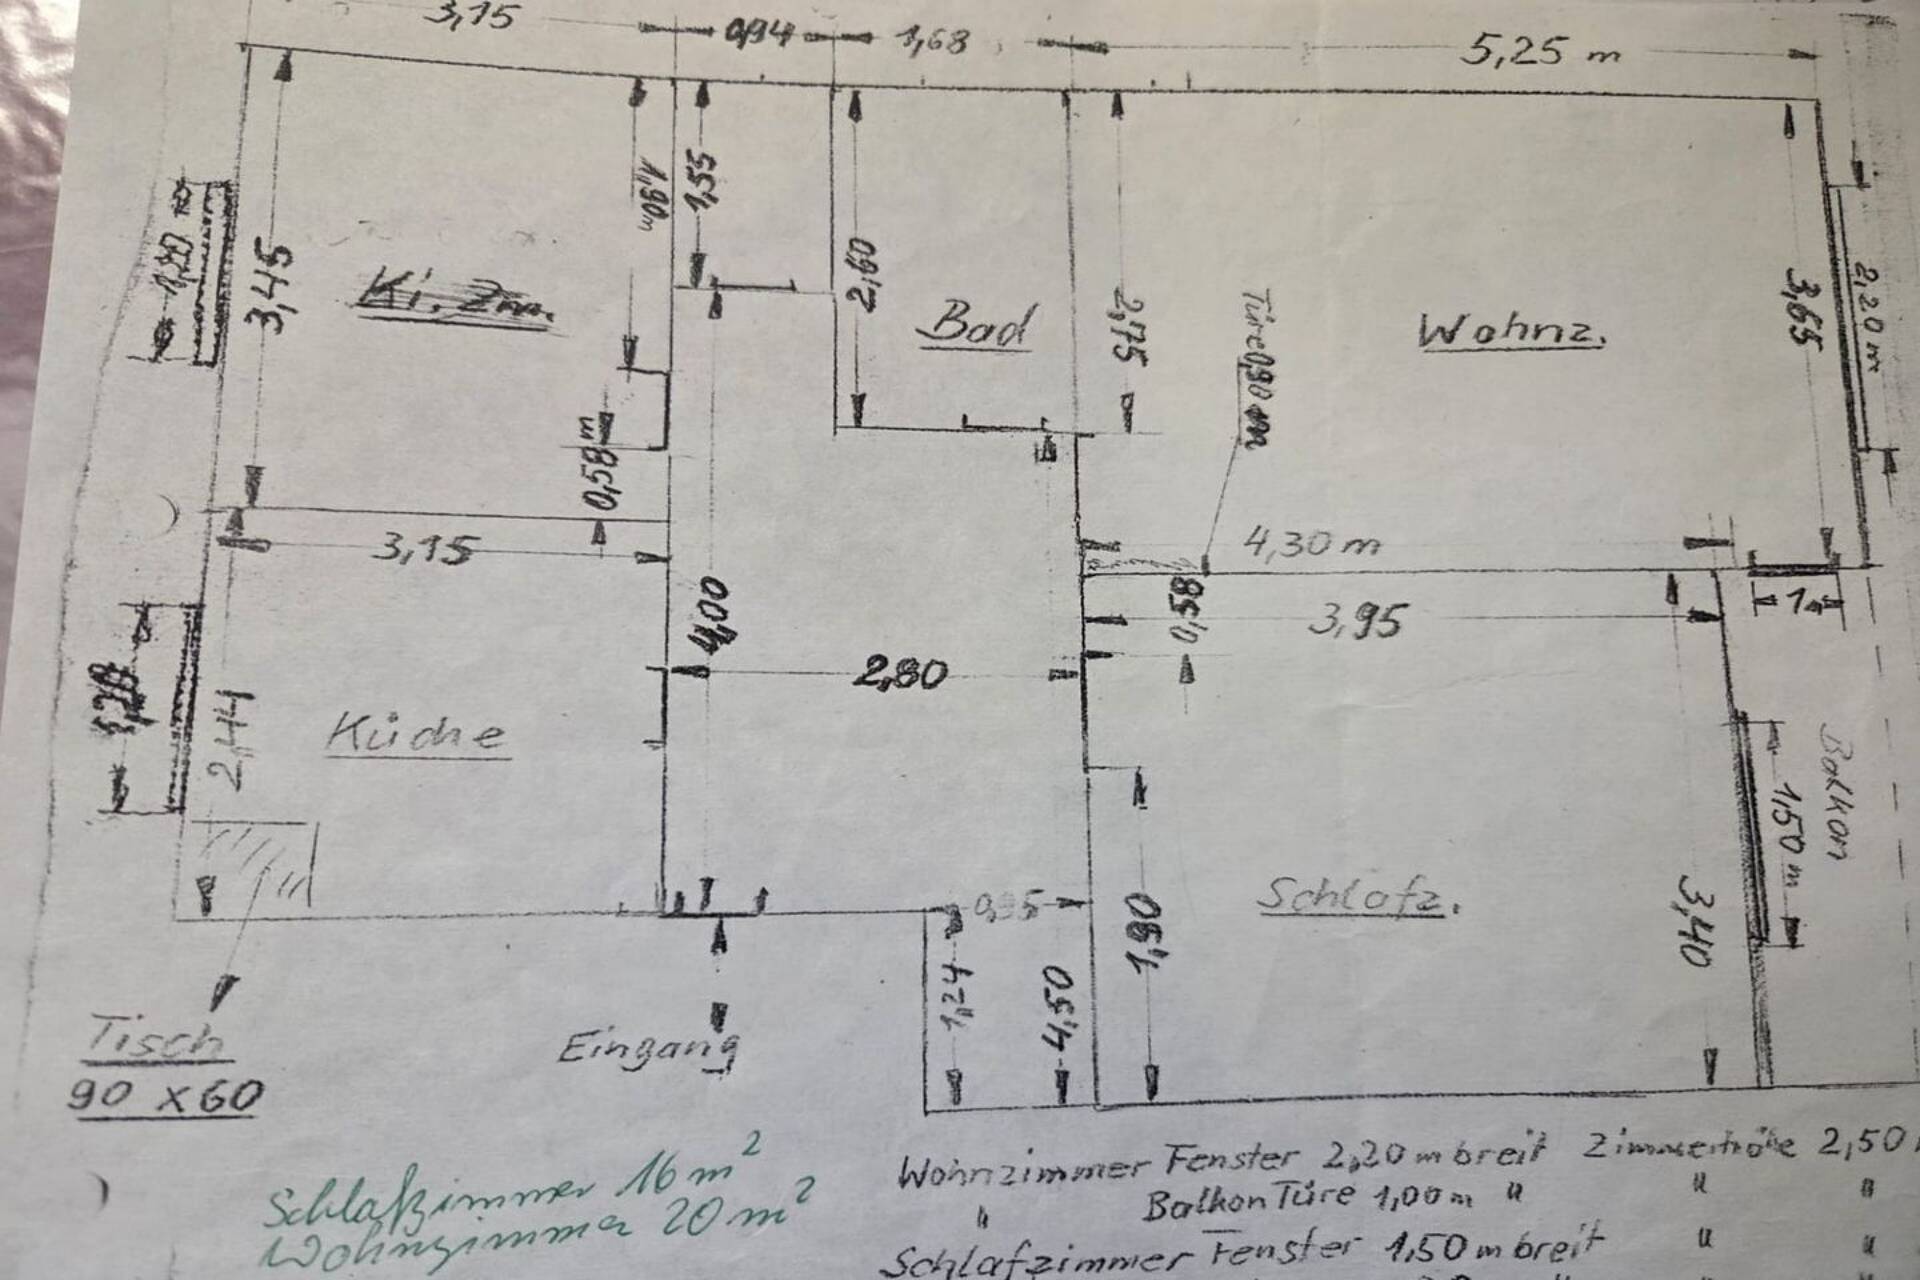 3,15
0,94
1,68
5,25 m
1,90m
1,55
2,60
2,75
3,65
2,20 m
1,20
3,45
Ki. Zm.
Bad
Wohnz.
Türe 0,90 m
0,58 m
3,15
4,30 m
1,-
0,58
3,95
4,00
2,80
2,44
Küche
Balkon
1,50 m
Schlafz.
3,40
0,95
1,90
1,24
4,50
Tisch
90 x 60
Eingang
Schlafzimmer 16 m²
Wohnzimmer 20 m²
Wohnzimmer Fenster 2,20 m breit Zimmerhöhe 2,50
" Balkon Türe 1,00 m " " "
Schlafzimmer Fenster 1,50 m breit " "